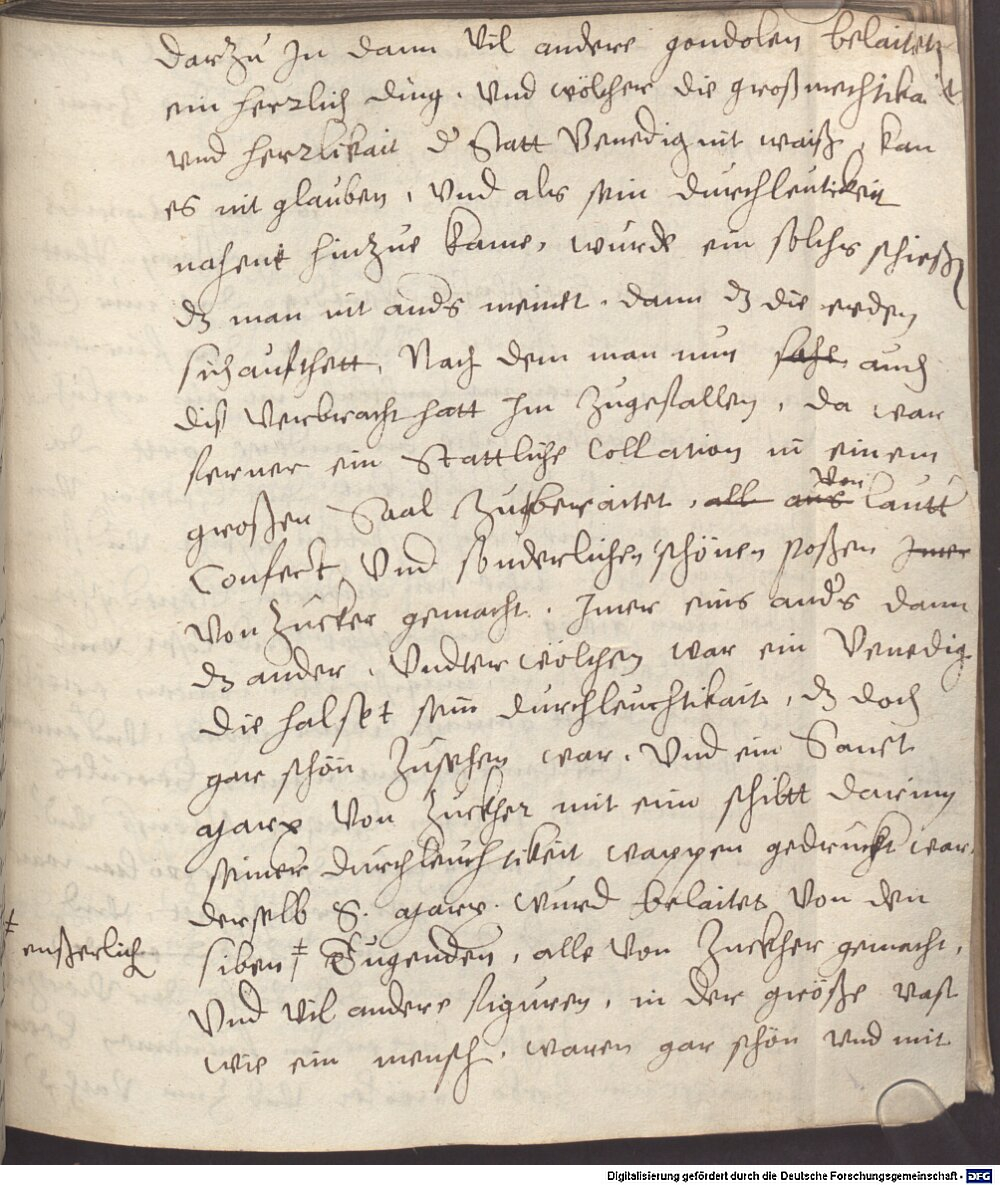 darzu In dann vil andere gondolen belaiteten
ein herrlich ding. Vnd wölcher die großmechtikai t
vnd herrlikait d' Statt Venedig nit waiß, kan
es nit glauben, Vnd als sein durchleutikeit
nahent hinzue kame, wurde ein solchs schießen
dz man nit anders meinet, dann dz die erden
sich aufthett, Nach dem man nun sahe auch
diß verbracht hatt Im zugefallen, da war
ferner ein Stattliche Collation in einem
von
großen Saal zuberaitet, all aus lautter
Confect Vnd sonderlichen schönen poßen Imer
von zucker gemacht. Imer eins anders dann
dz ander, Vndter wölchen war ein Venedig
die halset sein durchleuchtikait, dz doch
gar schön zusehen war. Vnd ein Sanct
Marx von Zuckher mit eim schiltt darinn
seiner durchleuchtikeit wappen gedruckt war.
derselb S. Marx. wurd belaitet von den
‡ eußerlich
siben ‡ Tugenden, alle von Zuckher gemacht,
Vnd vil andere figuren, in der größe vast
wie ein mensch, waren gar schön vnd mit
Digitalisierung gefördert durch die Deutsche Forschungsgemeinschaft - DFG